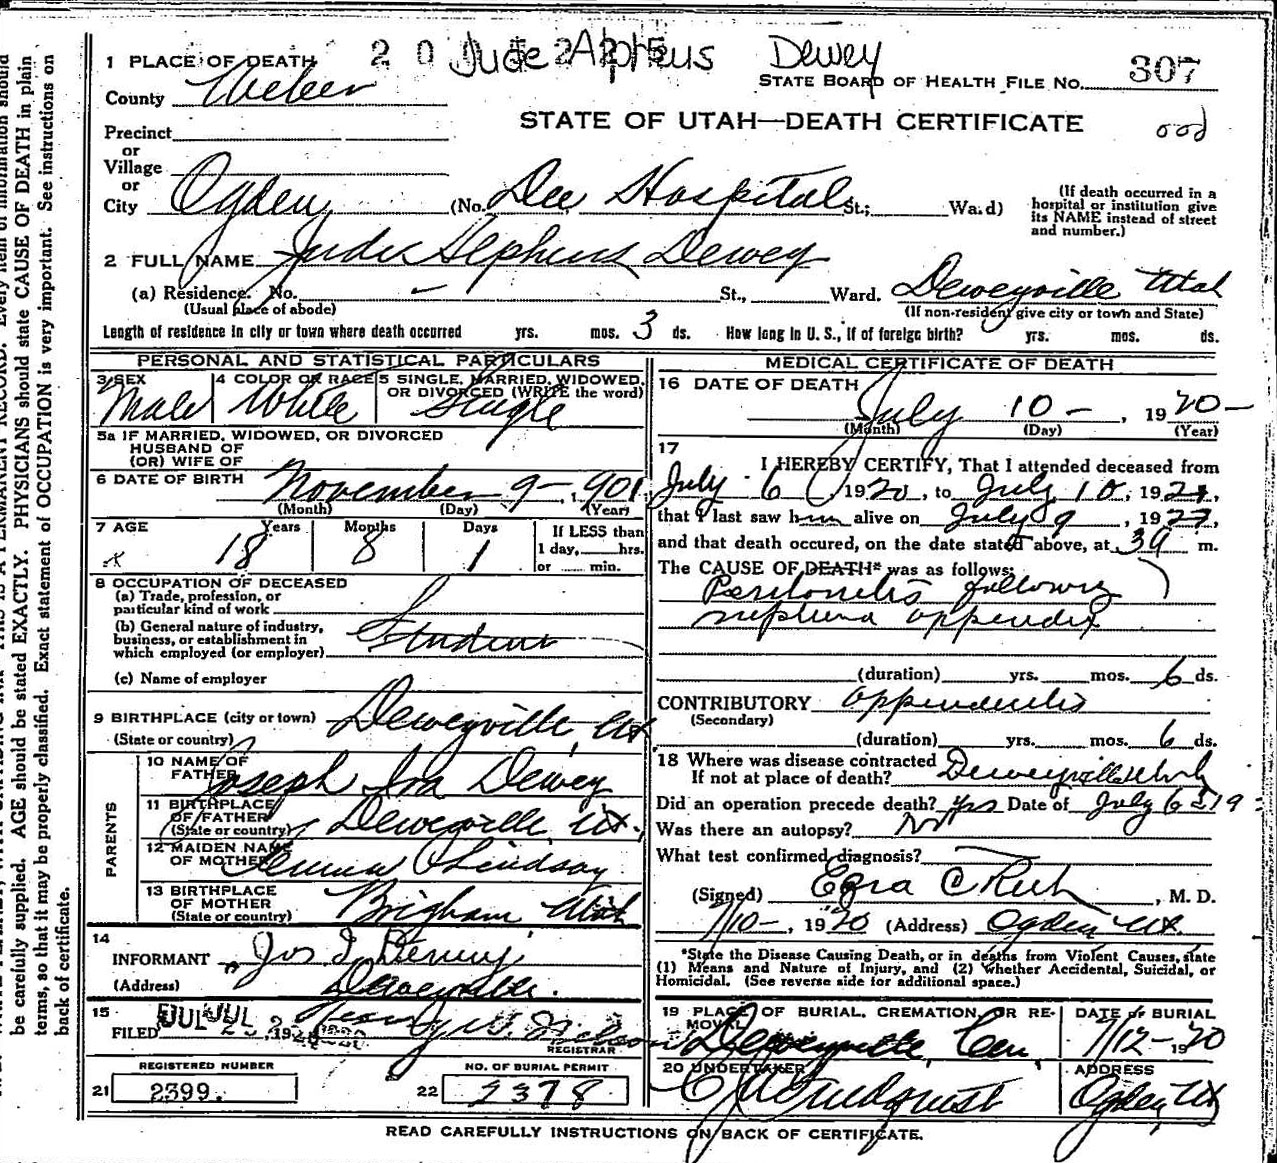 Jude Alpheus Dewey
1 PLACE OF DEATH
STATE BOARD OF HEALTH FILE NO. 307
County Weber
STATE OF UTAH—DEATH CERTIFICATE
Precinct
or
Village
or
City Ogden (No. Dee Hospital St.; Wa.d)
(If death occurred in a hospital or institution give its NAME instead of street and number.)
2 FULL NAME Jude Alpheus Dewey
(a) Residence. No. St., Ward. Deweyville Utah
(Usual place of abode) (If non-resident give city or town and State)
Length of residence in city or town where death occurred yrs. mos. 3 ds. How long in U. S., if of foreign birth? yrs. mos. ds.
PERSONAL AND STATISTICAL PARTICULARS
3 SEX Male
4 COLOR OR RACE White
5 SINGLE, MARRIED, WIDOWED, OR DIVORCED (WRITE the word) Single
5a IF MARRIED, WIDOWED, OR DIVORCED
HUSBAND OF
(OR) WIFE OF
6 DATE OF BIRTH November 9-, 1901
(Month) (Day) (Year)
7 AGE Years Months Days If LESS than
18 8 1 1 day, hrs.
or min.
8 OCCUPATION OF DECEASED
(a) Trade, profession, or
particular kind of work
(b) General nature of industry,
business, or establishment in
which employed (or employer) Student
(c) Name of employer
9 BIRTHPLACE (city or town) Deweyville, Ut
(State or country)
PARENTS
10 NAME OF FATHER Joseph Ira Dewey
11 BIRTHPLACE OF FATHER Deweyville, Ut.
(State or country)
12 MAIDEN NAME OF MOTHER Lindsay
13 BIRTHPLACE OF MOTHER Brigham Utah
(State or country)
14
INFORMANT Jos I. Dewey
(Address) Deweyville.
15
FILED JUL 192 Henry W. Nelson
REGISTRAR
REGISTERED NUMBER NO. OF BURIAL PERMIT
21 2399. 22 2378
MEDICAL CERTIFICATE OF DEATH
16 DATE OF DEATH
July 10-, 1920-
(Month) (Day) (Year)
17
I HEREBY CERTIFY, That I attended deceased from
July 6, 1920, to July 10, 192
that I last saw him alive on July 9, 192
and that death occured, on the date stated above, at m.
The CAUSE OF DEATH* was as follows:
Peritonitis following
ruptured appendix
(duration) yrs. mos. 6 ds.
CONTRIBUTORY appendicitis
(Secondary)
(duration) yrs. mos. 6 ds.
18 Where was disease contracted
If not at place of death? Deweyville Utah
Did an operation precede death? yes Date of July 6 19
Was there an autopsy? No
What test confirmed diagnosis?
(Signed) Ezra C Rich, M. D.
7/10-, 1920 (Address) Ogden Ut.
*State the Disease Causing Death, or in deaths from Violent Causes, state
(1) Means and Nature of Injury, and (2) Whether Accidental, Suicidal, or
Homicidal. (See reverse side for additional space.)
19 PLACE OF BURIAL, CREMATION, OR REMOVAL DATE of BURIAL
Deweyville, Cem. 7/12-1920
20 UNDERTAKER ADDRESS
Ogden, Ut
READ CAREFULLY INSTRUCTIONS ON BACK OF CERTIFICATE.
be carefully supplied. AGE should be stated EXACTLY. PHYSICIANS should state CAUSE OF DEATH in plain
terms, so that it may be properly classified. Exact statement of OCCUPATION is very important. See instructions on
back of certificate.